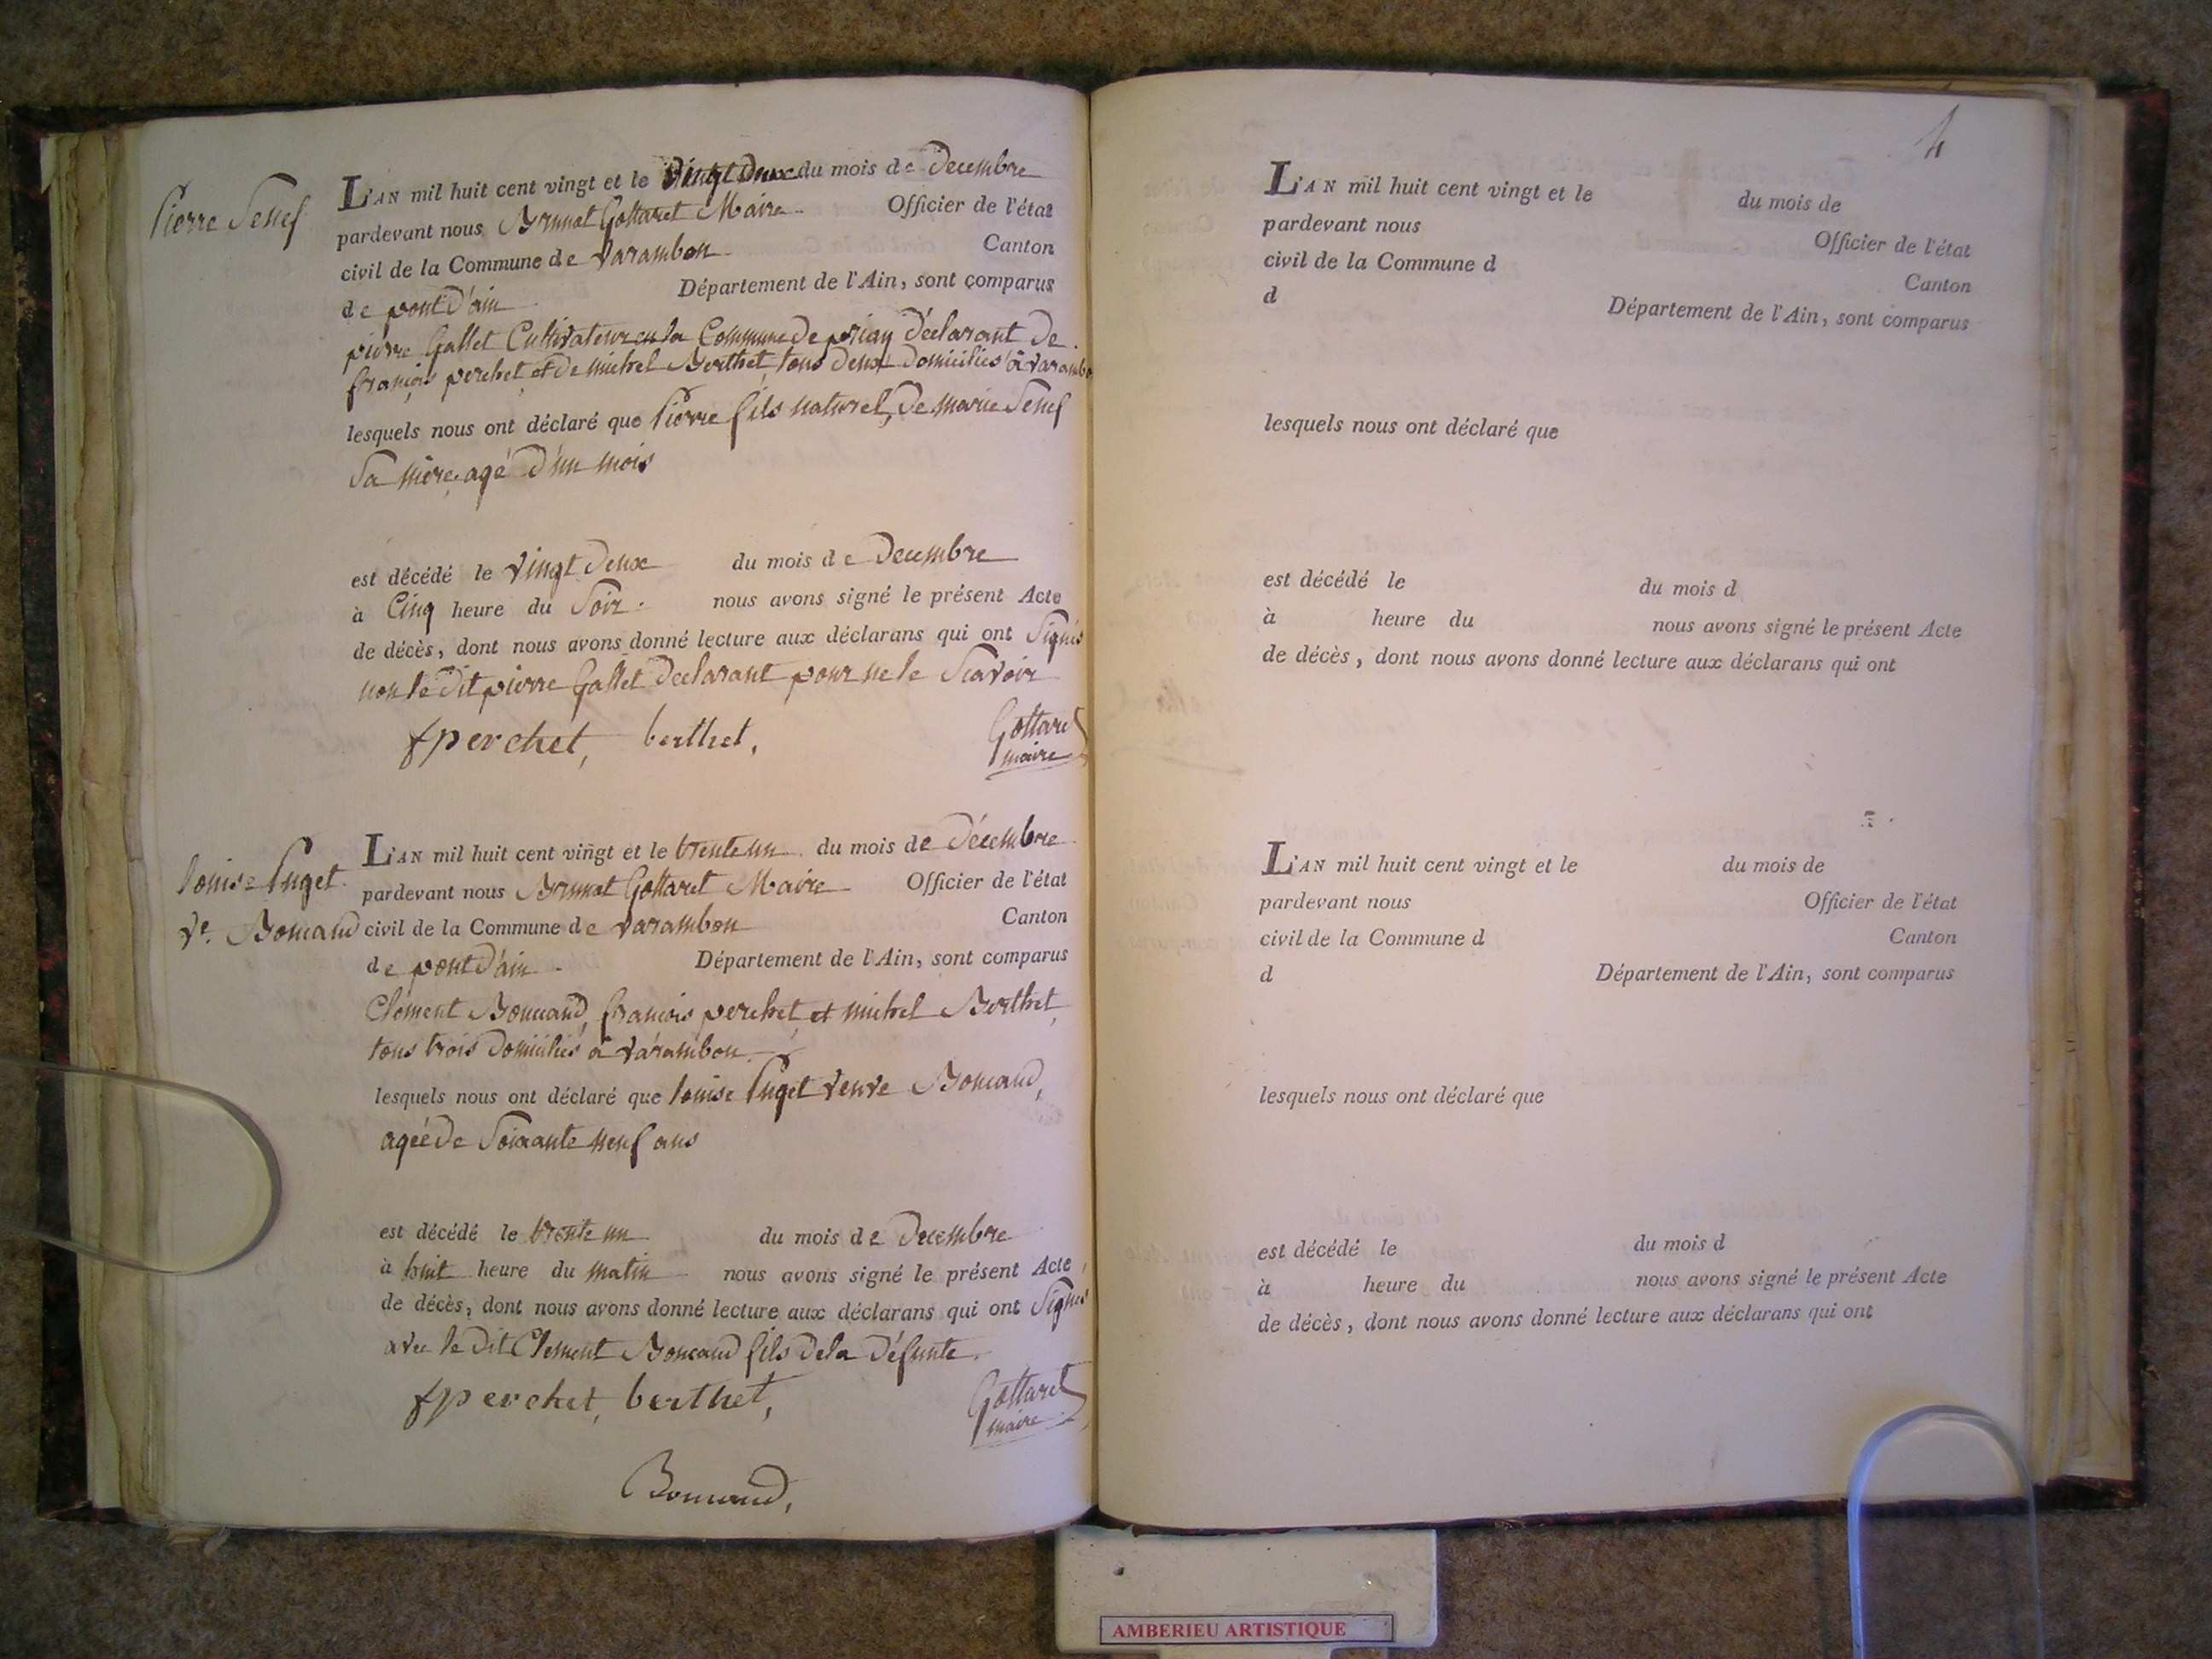 Pierre Senef
L'AN mil huit cent vingt et le vingt deux du mois de Decembre
pardevant nous Brunet Gottaret Maire Officier de l'état
civil de la Commune de Varambon Canton
de pont D'ain Département de l'Ain, sont comparus
pierre Gallet Cultivateur en la Commune de priay Déclarant De
françois perchet et De michel Berthet, tous Deux Domiciliés à Varambon
lesquels nous ont déclaré que Pierre fils naturel, De marie Senef
Sa mère agé D'un mois
est décédé le Vingt Deux du mois de Decembre
à Cinq heure du Soir. nous avons signé le présent Acte
de décès, dont nous avons donné lecture aux déclarans qui ont Signés
non le Dit pierre Gallet Declarant pour ne le Scavoir
fperchet, berthet, Gottaret
maire
Louise Puget
Ve. Bomand
L'AN mil huit cent vingt et le trente un du mois de Décembre
pardevant nous Brunet Gottaret Maire Officier de l'état
civil de la Commune de Varambon Canton
de pont D'ain Département de l'Ain, sont comparus
Clément Bomand, françois perchet, et michel Berthet,
tous trois Domiciliés à Varambon
lesquels nous ont déclaré que Louise Puget Veuve Bomand,
agée De Soixante neuf ans
est décédé le trente un du mois de Decembre
à huit heure du matin nous avons signé le présent Acte
de décès, dont nous avons donné lecture aux déclarans qui ont Signés
avec le Dit Clement Bomand fils De la Défunte.
fperchet, berthet, Gottaret
maire
Bomand,
4
L'AN mil huit cent vingt et le du mois de
pardevant nous Officier de l'état
civil de la Commune d Canton
d Département de l'Ain, sont comparus
lesquels nous ont déclaré que
est décédé le du mois d
à heure du nous avons signé le présent Acte
de décès, dont nous avons donné lecture aux déclarans qui ont
L'AN mil huit cent vingt et le du mois de
pardevant nous Officier de l'état
civil de la Commune d Canton
d Département de l'Ain, sont comparus
lesquels nous ont déclaré que
est décédé le du mois d
à heure du nous avons signé le présent Acte
de décès, dont nous avons donné lecture aux déclarans qui ont
AMBERIEU ARTISTIQUE